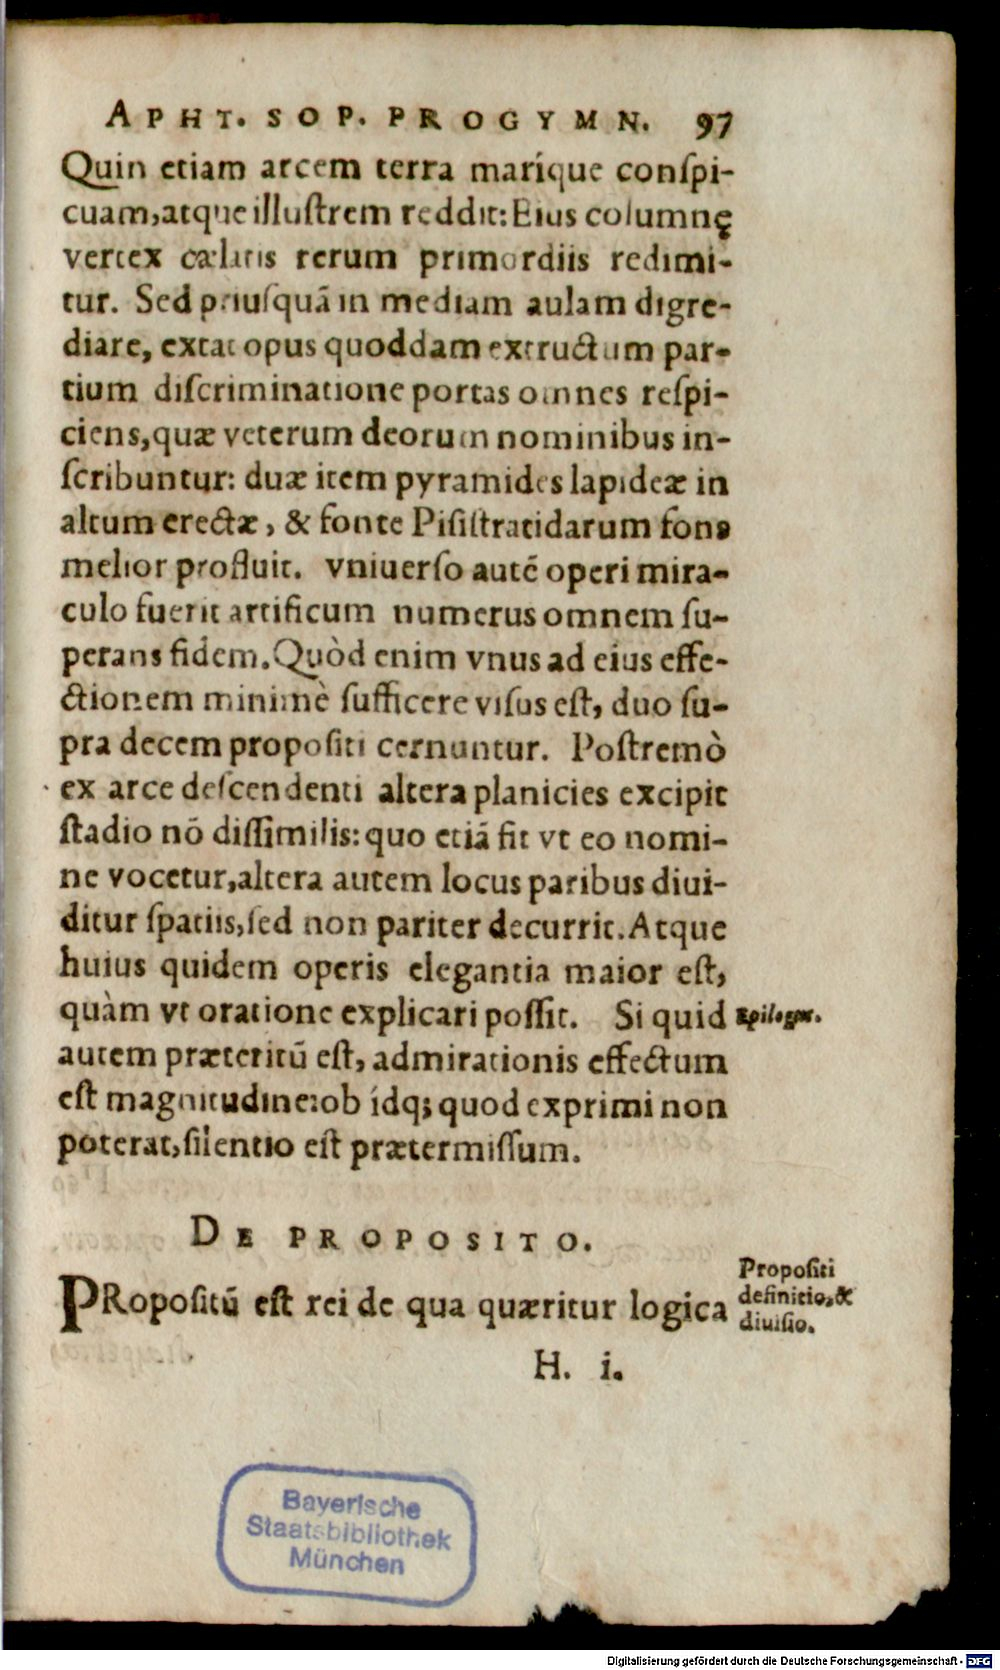 APHT. SOP. PROGYMN. 97
Quin etiam arcem terra maríque conſpi-
cuam,atque illuſtrem reddit: Eius columnę
vertex cælatis rerum primordiis redimi-
tur. Sed priuſquã in mediam aulam digre-
diare, extat opus quoddam extructum par-
tium diſcriminatione portas omnes reſpi-
ciens,quæ veterum deorum nominibus in-
ſcribuntur: duæ item pyramides lapideæ in
altum erectæ, & fonte Piſiſtratidarum fons
melior profluit. vniuerſo autẽ operi mira-
culo fuerit artificum numerus omnem ſu-
perans fidem. Quòd enim vnus ad eius effe-
ctionem minimè ſufficere viſus eſt, duo ſu-
pra decem propoſiti cernuntur. Poſtremò
ex arce deſcendenti altera planicies excipit
ſtadio nõ diſſimilis: quo etiã fit vt eo nomi-
ne vocetur,altera autem locus paribus diui-
ditur ſpatiis,ſed non pariter decurrit. Atque
huius quidem operis elegantia maior eſt,
quàm vt oratione explicari poſſit. Si quid
Epilogus.
autem præteritũ eſt, admirationis effectum
eſt magnitudine: ob ídq; quod exprimi non
poterat, ſilentio eſt prætermiſſum.
DE PROPOSITO.
PRopoſitũ eſt rei de qua quæritur logica
Propoſiti
definitio,&
diuiſio.
H. i.
Bayerische
Staatsbibliothek
München
Digitalisierung gefördert durch die Deutsche Forschungsgemeinschaft - DFG